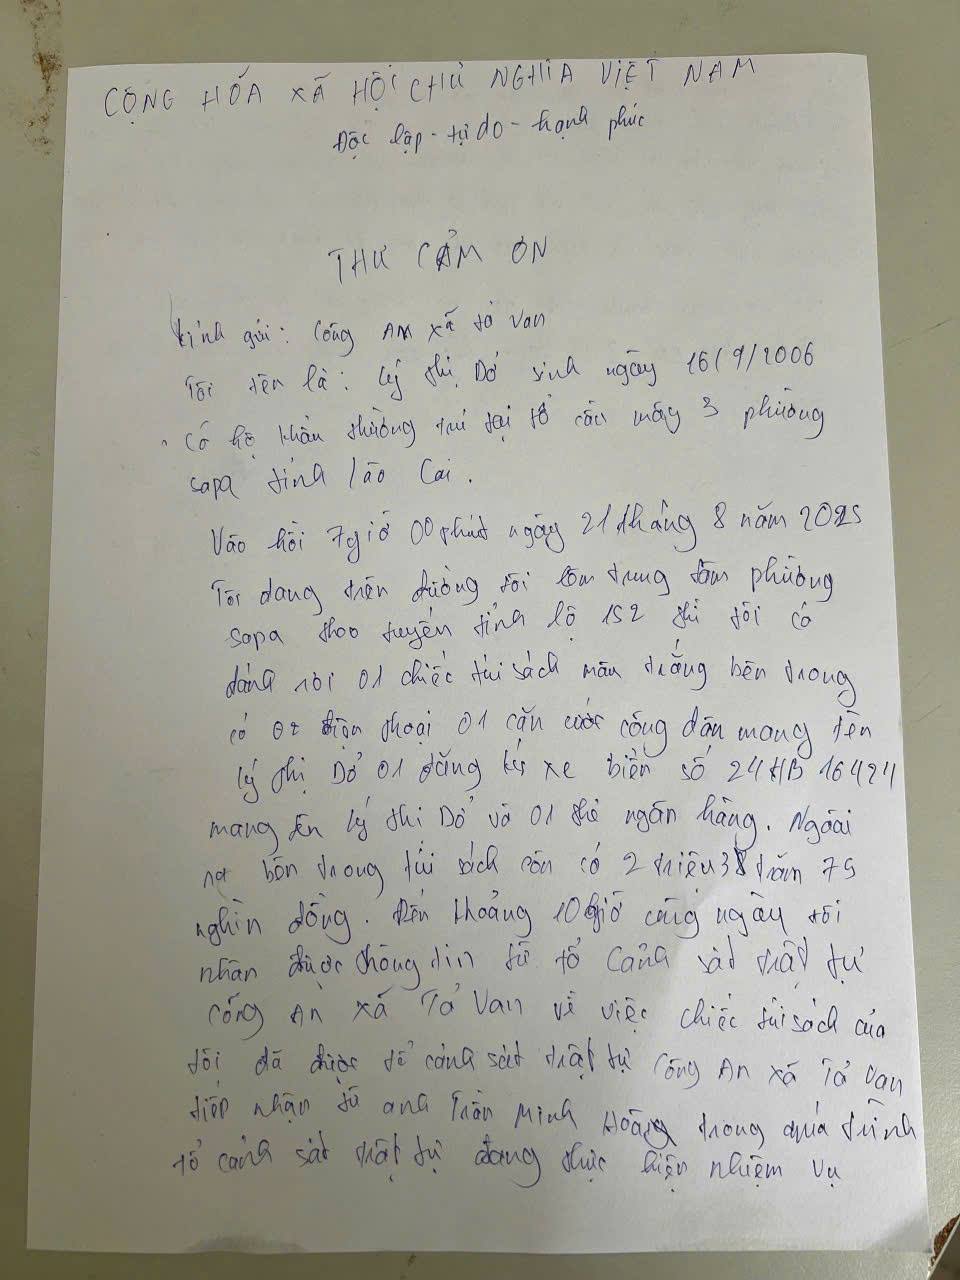 CỘNG HÓA XÃ HỘI CHỦ NGHĨA VIỆT NAM
Độc lập - tự do - hạnh phúc
THƯ CẢM ƠN
Kính gửi: Công AN xã tả van
Tôi tên là: Lý thị Dở sinh ngày 16/9/2006
Có hộ khẩu thường trú tại tổ cầu mây 3 phường
sapa tỉnh lào Cai.
Vào hồi 7giờ 00phút ngày 21 tháng 8 năm 2025
Tôi đang trên đường tới trung tâm phường
sapa theo tuyến tỉnh lộ 152 thì tôi có
đánh rơi 01 chiếc túi sách màu trắng bên trong
có điện thoại 01 căn cước công dân mang tên
lý thị Dở 01 đăng ký xe biển số 24HB 16424
mang tên lý thi Dở và 01 thẻ ngân hàng. Ngoài
ra bên trong túi sách còn có 2 triệu trăm 75
nghìn đồng. Đến khoảng 10 giờ cùng ngày tôi
nhân được thông tin từ tổ Cảnh sát trật tự
công AN xã Tả Van về việc chiếc túi sách của
tôi đã được tổ cảnh sát trật tự công An xã Tả Van
tiếp nhận từ anh Trần Minh Hoàng trong quá trình
tổ cảnh sát trật tự đang thực hiện nhiệm vụ